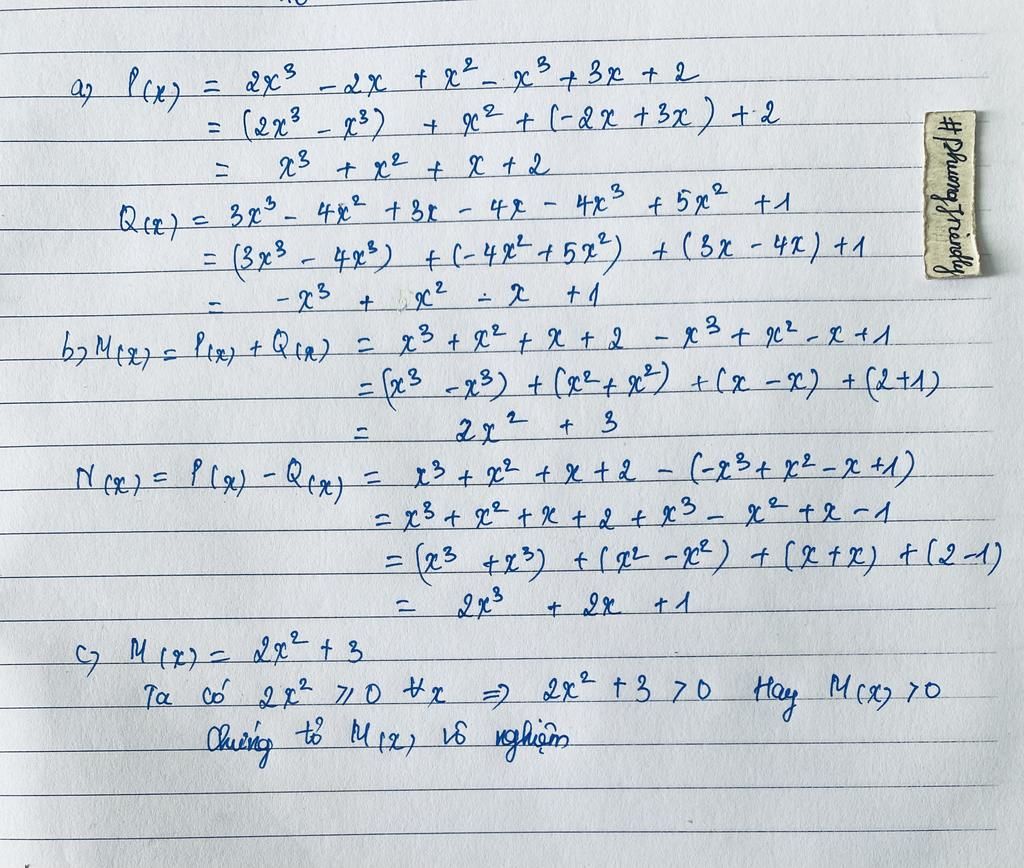 a, P(x) = 2x³ - 2x + x² - x³ + 3x + 2
= (2x³ - x³) + x² + (-2x + 3x) + 2
= x³ + x² + x + 2
Q(x) = 3x³ - 4x² + 3x - 4x - 4x³ + 5x² + 1
= (3x³ - 4x³) + (-4x² + 5x²) + (3x - 4x) + 1
= -x³ + x² - x + 1
b, M(x) = P(x) + Q(x) = x³ + x² + x + 2 - x³ + x² - x + 1
= (x³ - x³) + (x² + x²) + (x - x) + (2+1)
= 2x² + 3
N(x) = P(x) - Q(x) = x³ + x² + x + 2 - (-x³ + x² - x + 1)
= x³ + x² + x + 2 + x³ - x² + x - 1
= (x³ + x³) + (x² - x²) + (x + x) + (2-1)
= 2x³ + 2x + 1
c, M(x) = 2x² + 3
Ta có 2x² ⩾ 0 ∀x ⇒ 2x² + 3 > 0 Hay M(x) > 0
Chứng tỏ M(x) vô nghiệm
#phuongfriendly